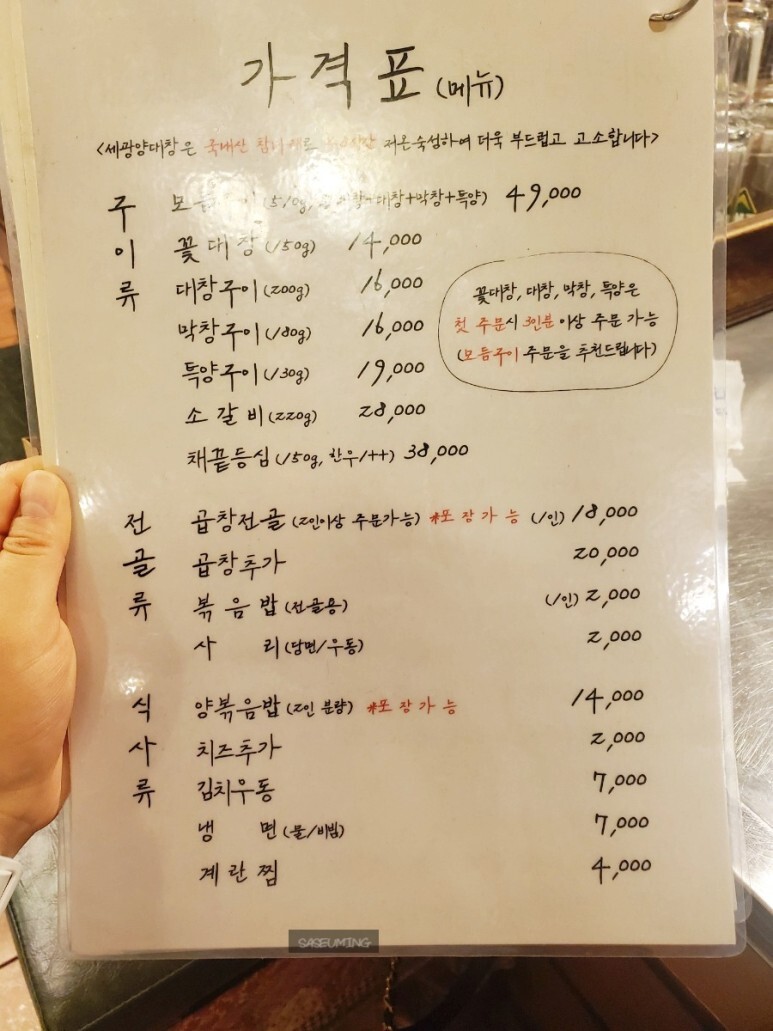 가격표 (메뉴)
<세광양대창은 국내산 참나무로 저온숙성하여 더욱 부드럽고 고소합니다>
구이류
모듬구이 (510g, 대창+막창+특양) 49,000
꽃대창 (150g) 14,000
대창구이 (200g) 16,000
막창구이 (180g) 16,000
특양구이 (130g) 19,000
소갈비 (220g) 28,000
채끝등심 (150g, 한우1++) 38,000
꽃대창, 대창, 막창, 특양은
첫 주문시 3인분 이상 주문 가능
(모듬구이 주문을 추천드립니다)
전골류
곱창전골 (2인이상 주문가능) *포장가능 (1인) 18,000
곱창추가 20,000
볶음밥 (전골용) (1인) 2,000
사리 (당면/우동) 2,000
식사류
양볶음밥 (2인 분량) *포장가능 14,000
치즈추가 2,000
김치우동 7,000
냉면 (물/비빔) 7,000
계란찜 4,000
SASEUMING